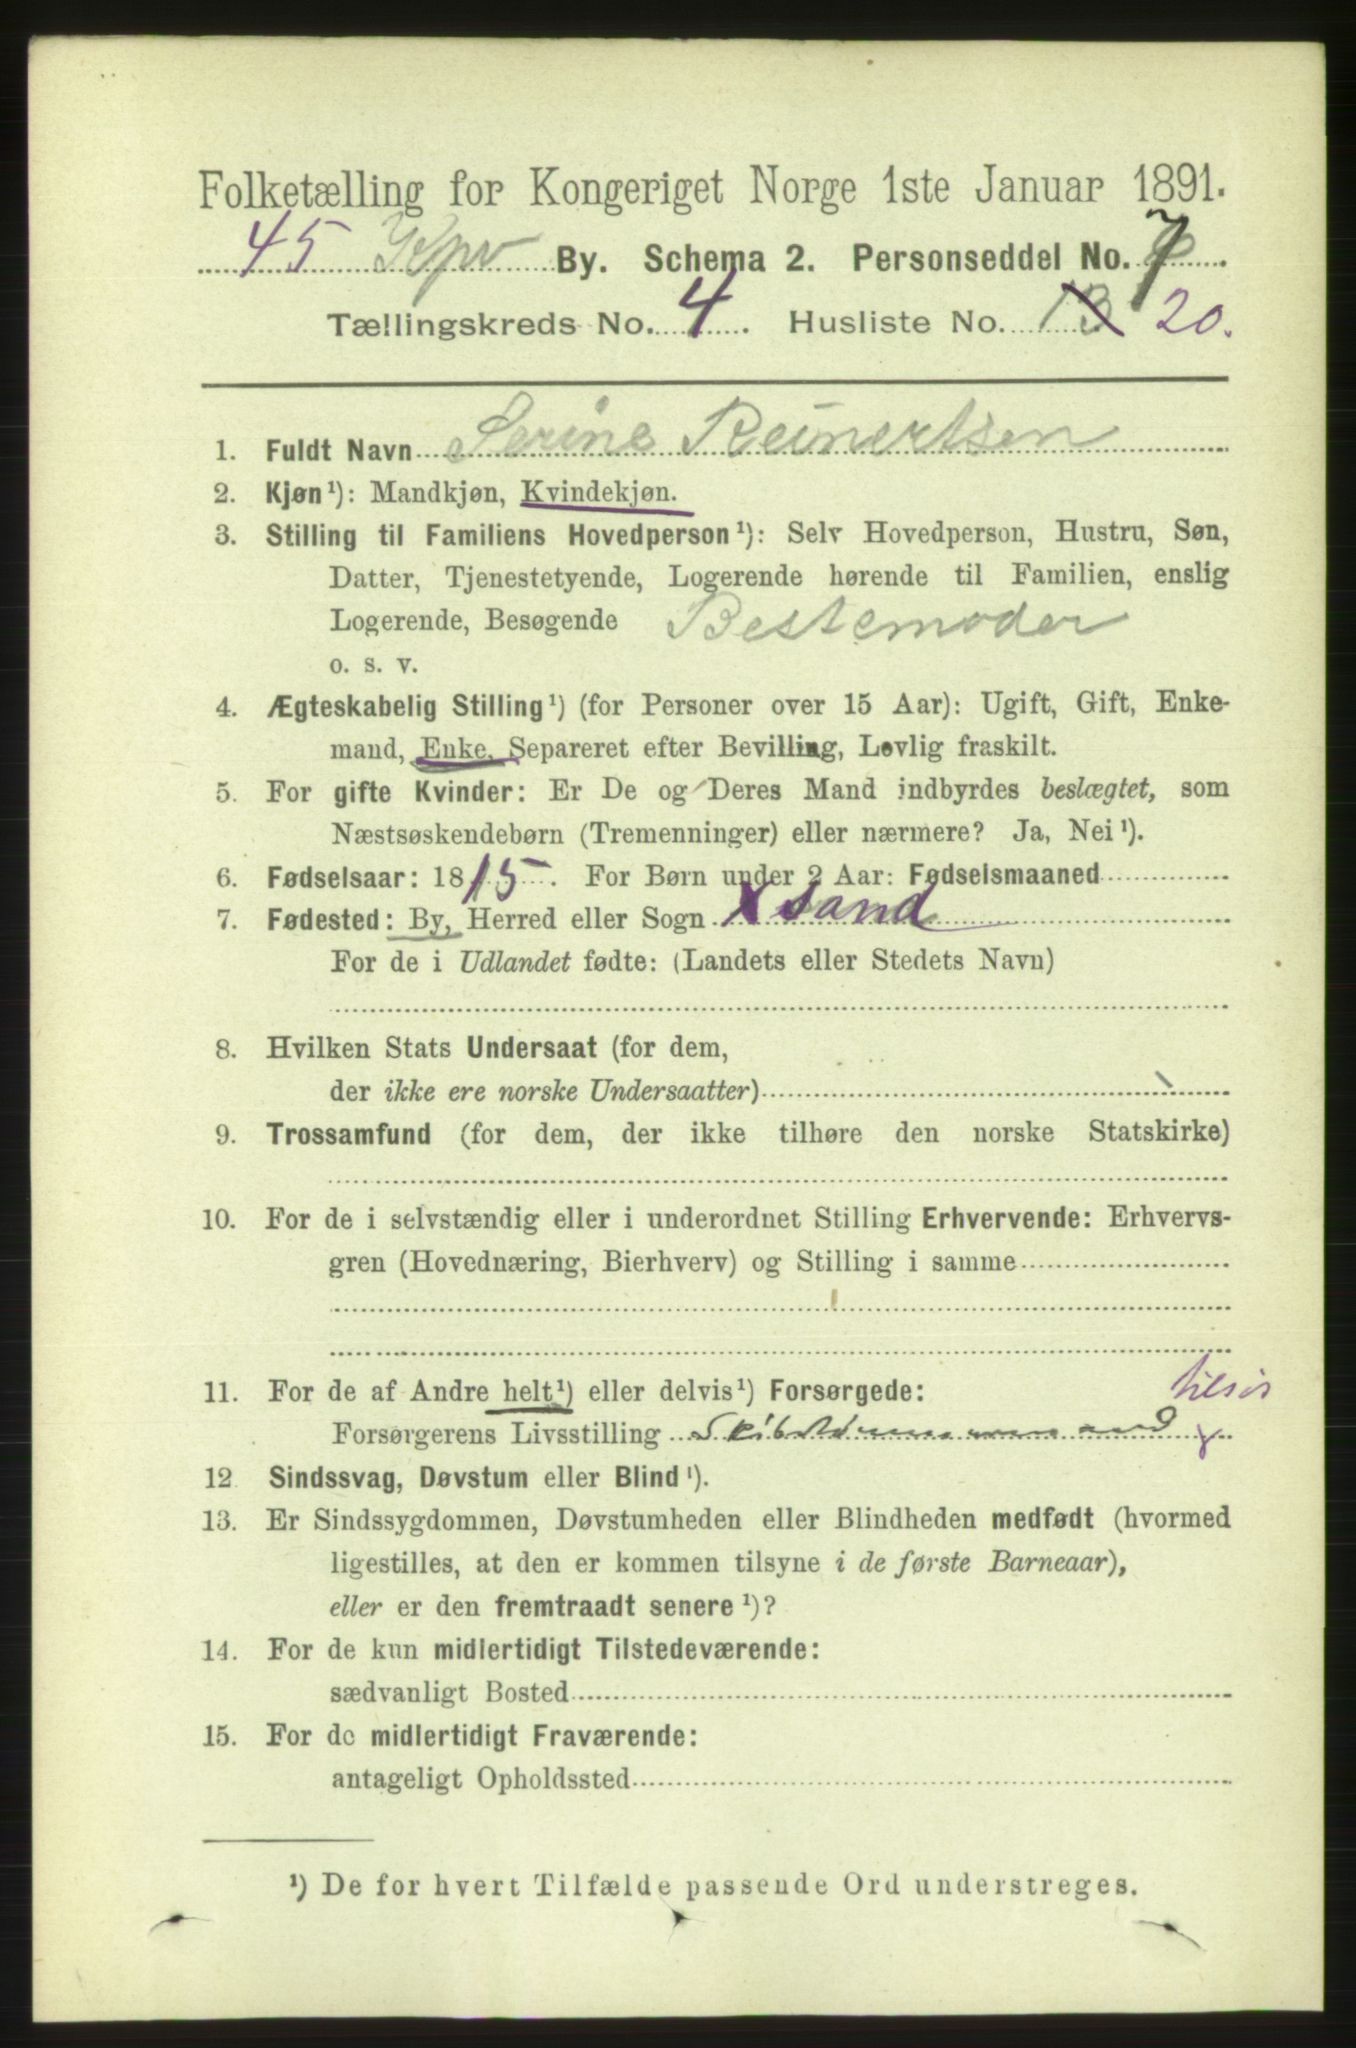 Folketælling for Kongeriget Norge 1ste Januar 1891.
45 Kpv By. Schema 2. Personseddel No. 7
Tællingskreds No. 4. Husliste No. 13 20.
1. Fuldt Navn Serine Reinertsen
2. Kjøn¹): Mandkjøn, Kvindekjøn.
3. Stilling til Familiens Hovedperson¹): Selv Hovedperson, Hustru, Søn,
Datter, Tjenestetyende, Logerende hørende til Familien, enslig
Logerende, Besøgende Bestemoder
o. s. v.
4. Ægteskabelig Stilling¹) (for Personer over 15 Aar): Ugift, Gift, Enke-
mand, Enke, Separeret efter Bevilling, Lovlig fraskilt.
5. For gifte Kvinder: Er De og Deres Mand indbyrdes beslægtet, som
Næstsøskendebørn (Tremenninger) eller nærmere? Ja, Nei¹).
6. Fødselsaar: 1815. For Børn under 2 Aar: Fødselsmaaned
7. Fødested: By, Herred eller Sogn Xsand
For de i Udlandet fødte: (Landets eller Stedets Navn)
8. Hvilken Stats Undersaat (for dem,
der ikke ere norske Undersaatter)
9. Trossamfund (for dem, der ikke tilhøre den norske Statskirke)
10. For de i selvstændig eller i underordnet Stilling Erhvervende: Erhvervs-
gren (Hovednæring, Bierhverv) og Stilling i samme
11. For de af Andre helt¹) eller delvis¹) Forsørgede:
Forsørgerens Livsstilling
12 Sindssvag, Døvstum eller Blind¹).
13. Er Sindssygdommen, Døvstumheden eller Blindheden medfødt (hvormed
ligestilles, at den er kommen tilsyne i de første Barneaar),
eller er den fremtraadt senere¹)?
14. For de kun midlertidigt Tilstedeværende:
sædvanligt Bosted
15. For de midlertidigt Fraværende:
antageligt Opholdssted
¹) De for hvert Tilfælde passende Ord understreges.